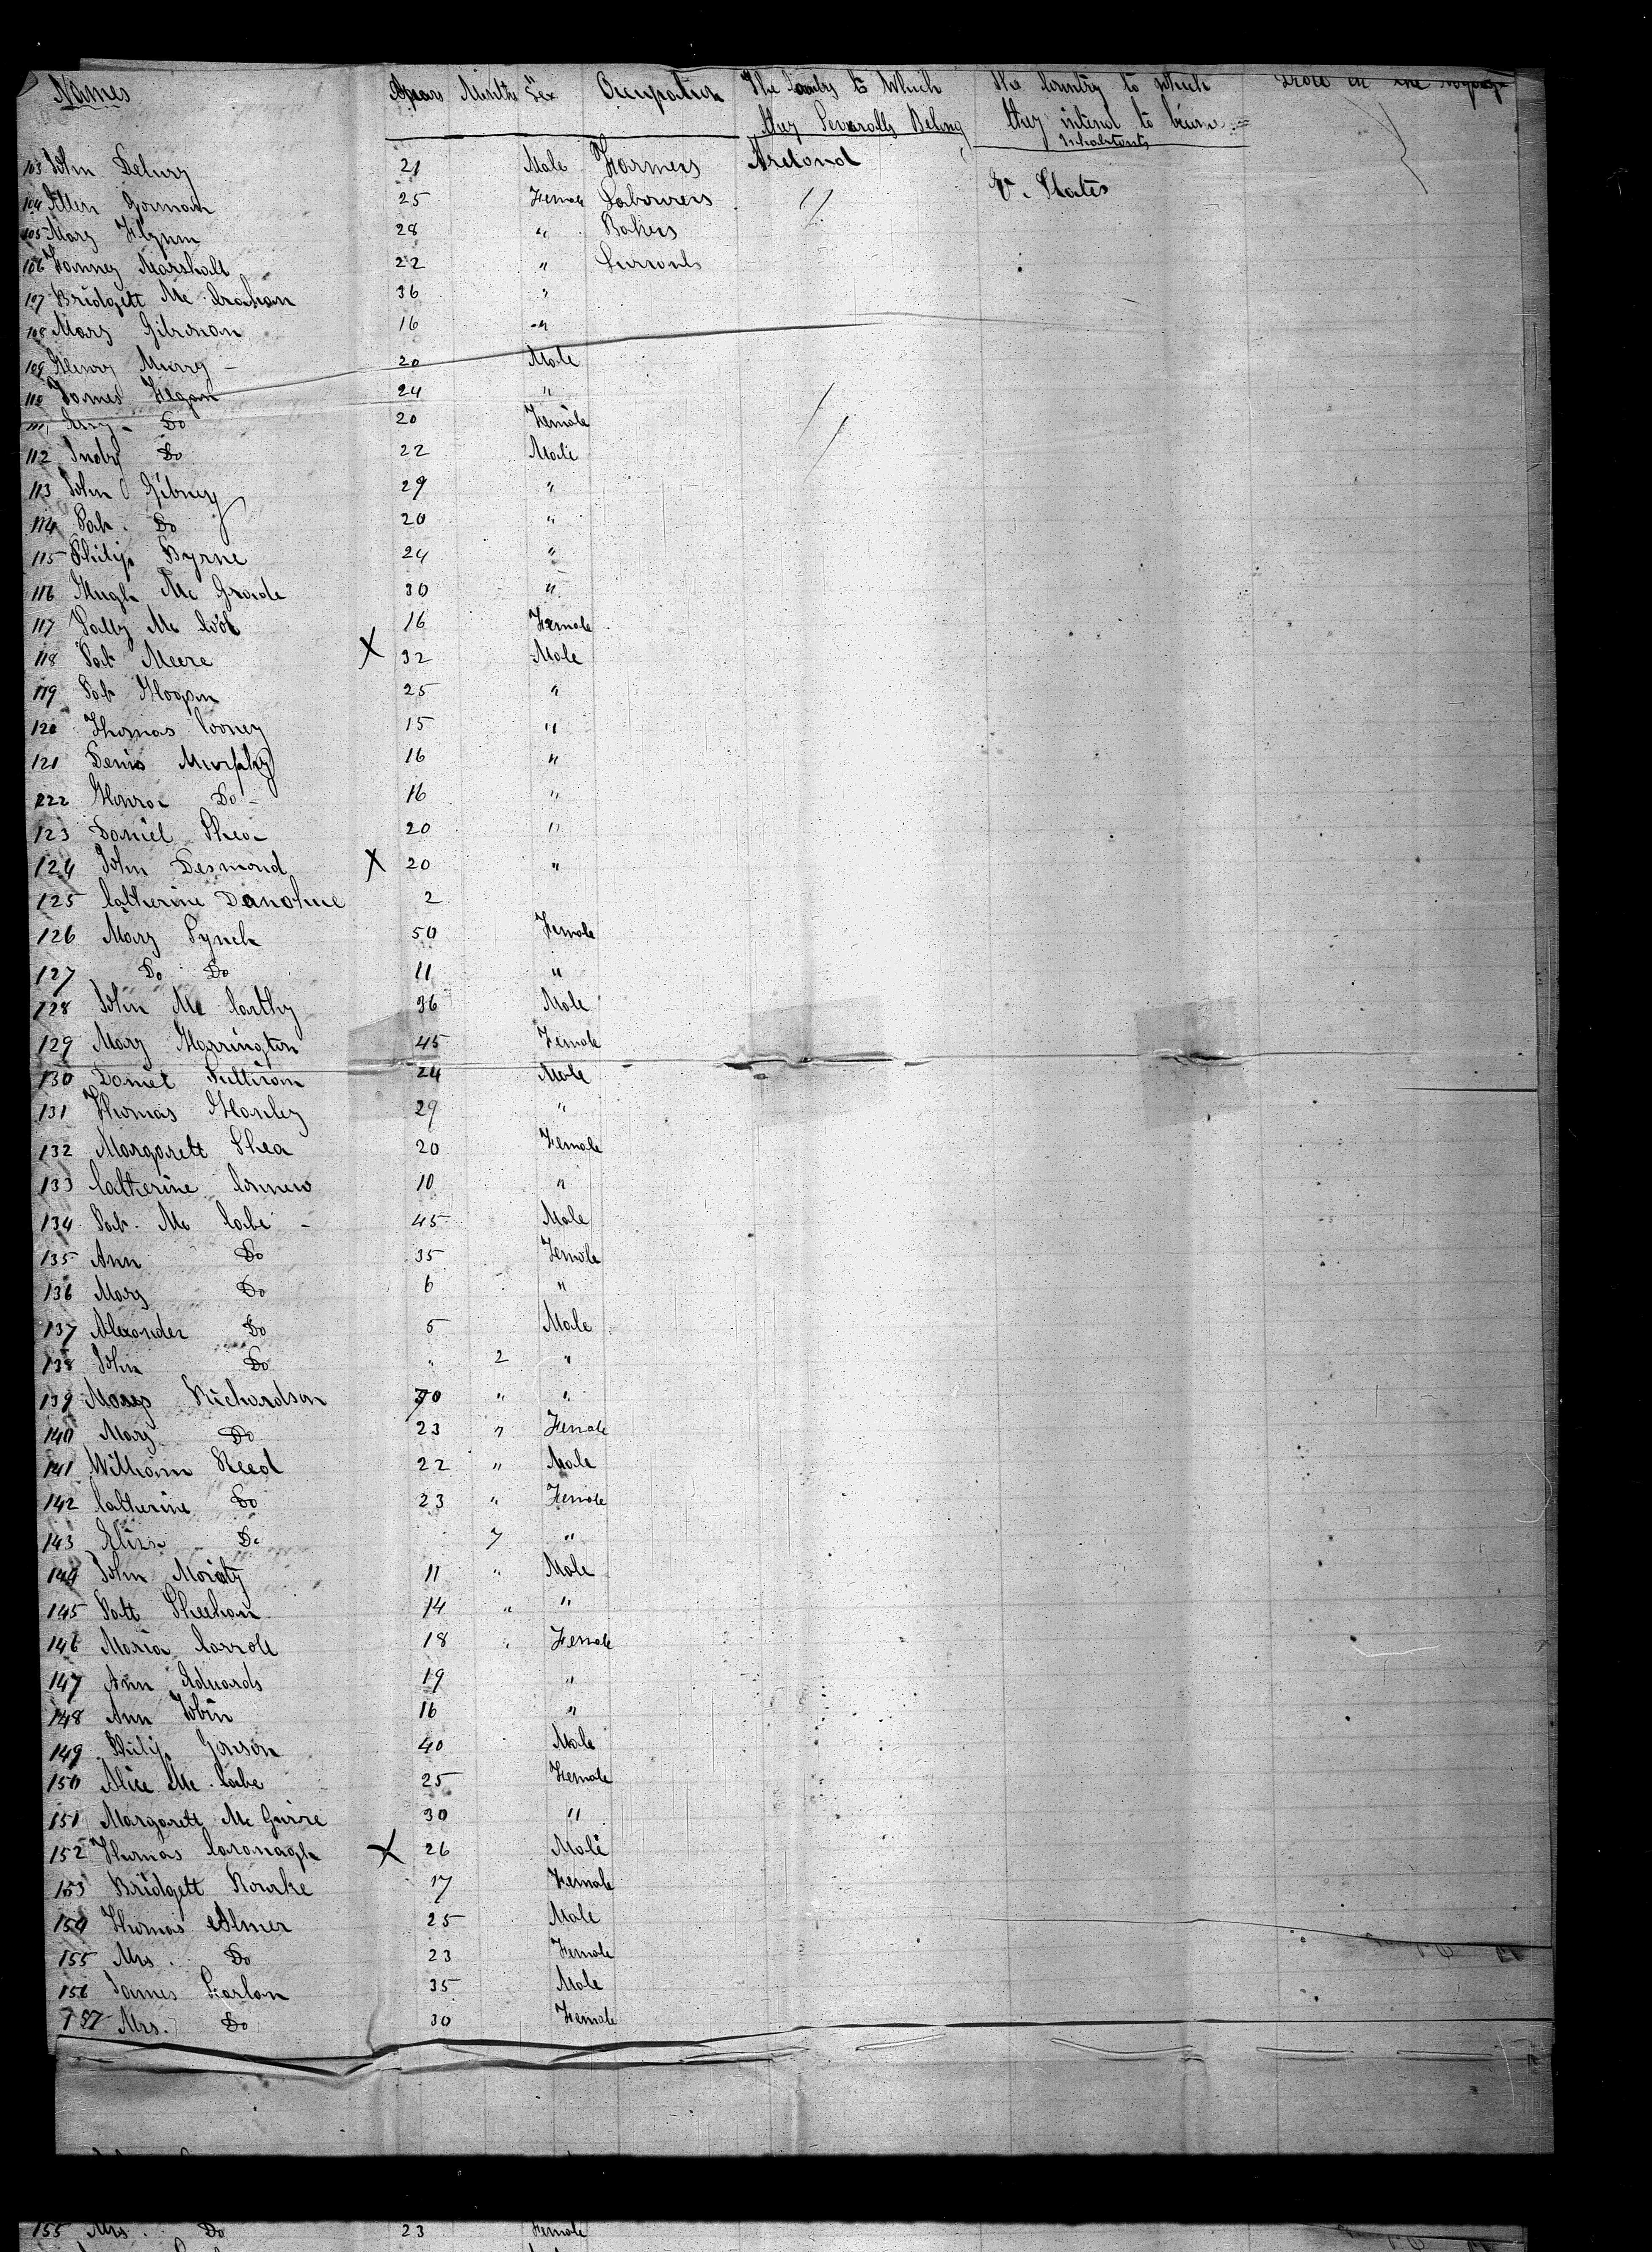 Names Years Months Sex Occupation The Country to Which they Severally Belong The Country to which they intend to become Inhabitants Died on the voyage
103 John Delury 21 Male Farmers Ireland U. States
104 Ellen Gorman 25 Female Labourers "
105 Mary Flynn 28 " Bakers
106 Fanney Marshall 22 " Servants
107 Bridgett Mc Crahan 36 "
108 Mary Gibsnan 16 "
109 Henry Murry - 20 Male
110 James Flagan 24 "
111 Do 20 Female
112 Do 22 Male
113 John Gibney 29 "
114 Pat. Do 20 "
115 Philip Byrne 24 "
116 Hugh Mc Grade 30 "
117 Sally Mc Cool 16 Female
118 Pat Meere X 32 Male
119 Pat Hoogan 25 "
120 Thomas Cooney 15 "
121 Denis Murphy 16 "
222 Honra Do - 16 "
123 Daniel Shea 20 "
124 John Desmond X 20 "
125 Catherine Danohue 2
126 Mary Lynch 50 Female
127 Do Do 11 "
128 John Mc Carthy 36 Male
129 Mary Harrington 45 Female
130 Daniel Sullivan 24 Male
131 Thomas Hanley 29 "
132 Margarett Shea 20 Female
133 Catherine 10 "
134 Pat. Mc Cabe - 45 Male
135 Ann Do 35 Female
136 Mary Do 6 "
137 Alexander Do 5 Male
138 John Do " 2 "
139 Moses Richardson 70 " "
140 Mary Do 23 " Female
141 William Reed 22 " Male
142 Catherine Do 23 " Female
143 Eliza Do 7 "
144 John Moriaty 11 " Male
145 Patt Sheehan 14 " "
146 Maria Carroll 18 " Female
147 Ann Edwards 19 "
148 Ann Tobin 16 "
149 Philip Gonson 40 Male
150 Alice Mc. Cabe 25 Female
151 Margarett Mc Guire 30 "
152 Thomas Cavanagh X 26 Male
153 Bridgett Rourke 17 Female
154 Thomas Almer 25 Male
155 Mrs. Do 23 Female
156 James Scarlan 35 Male
757 Mrs. Do 30 Female
155 Mrs. Do 23 Female